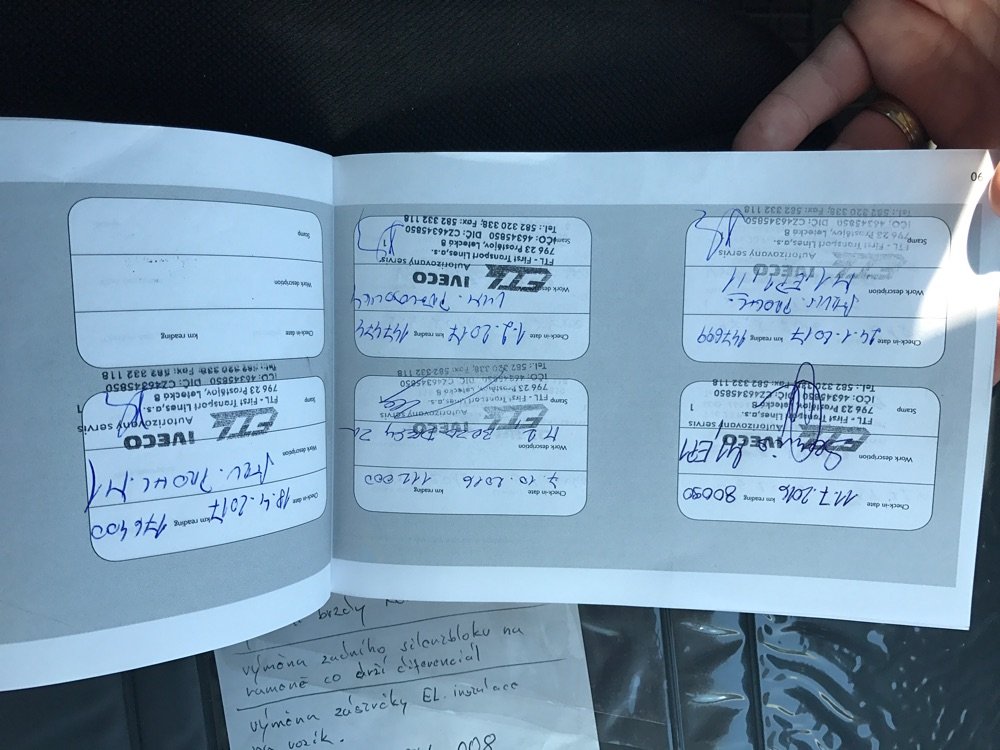 Check-in date 11.7.2016 km reading 80090
Work description
M1 EP1
IVECO
Autorizovaný servis
FTL - First Transport Lines,a.s.
796 23 Prostějov, Letecká 8
Stamp
1
Tel.: 582 320 338; Fax: 582 332 118
Check-in date 7.10.2016 km reading 112000
Work description
M2
FTL IVECO
Autorizovaný servis
FTL - First Transport Lines,a.s.
796 23 Prostějov, Letecká 8
IČO: 46345850 DIČ: CZ46345850
Stamp
1
Tel.: 582 320 338; Fax: 582 332 118
Check-in date 24.1.2017 km reading
Work description
M1, EP1
FTL IVECO
Autorizovaný servis
FTL - First Transport Lines,a.s.
796 23 Prostějov, Letecká 8
Stamp
1
IČO: 46345850 DIČ: CZ46345850
Tel.: 582 320 338; Fax: 582 332 118
Check-in date 1.2.2017 km reading 147474
Work description
FTL IVECO
Autorizovaný servis
FTL - First Transport Lines,a.s.
796 23 Prostějov, Letecká 8
Stamp
1
IČO: 46345850 DIČ: CZ46345850
Tel.: 582 320 338; Fax: 582 332 118
Check-in date 18.4.2017 km reading 176400
Work description
M1
FTL IVECO
Autorizovaný servis
FTL - First Transport Lines,a.s.
796 23 Prostějov, Letecká 8
Stamp
1
IČO: 46345850 DIČ: CZ46345850
Tel.: 582 320 338; Fax: 582 332 118
Check-in date km reading
Work description
Stamp
06
brzdy
výměna zadního silenzbloku na
rameně co drží diferenciál
výměna zástrčky EL. instalace
na vozík.